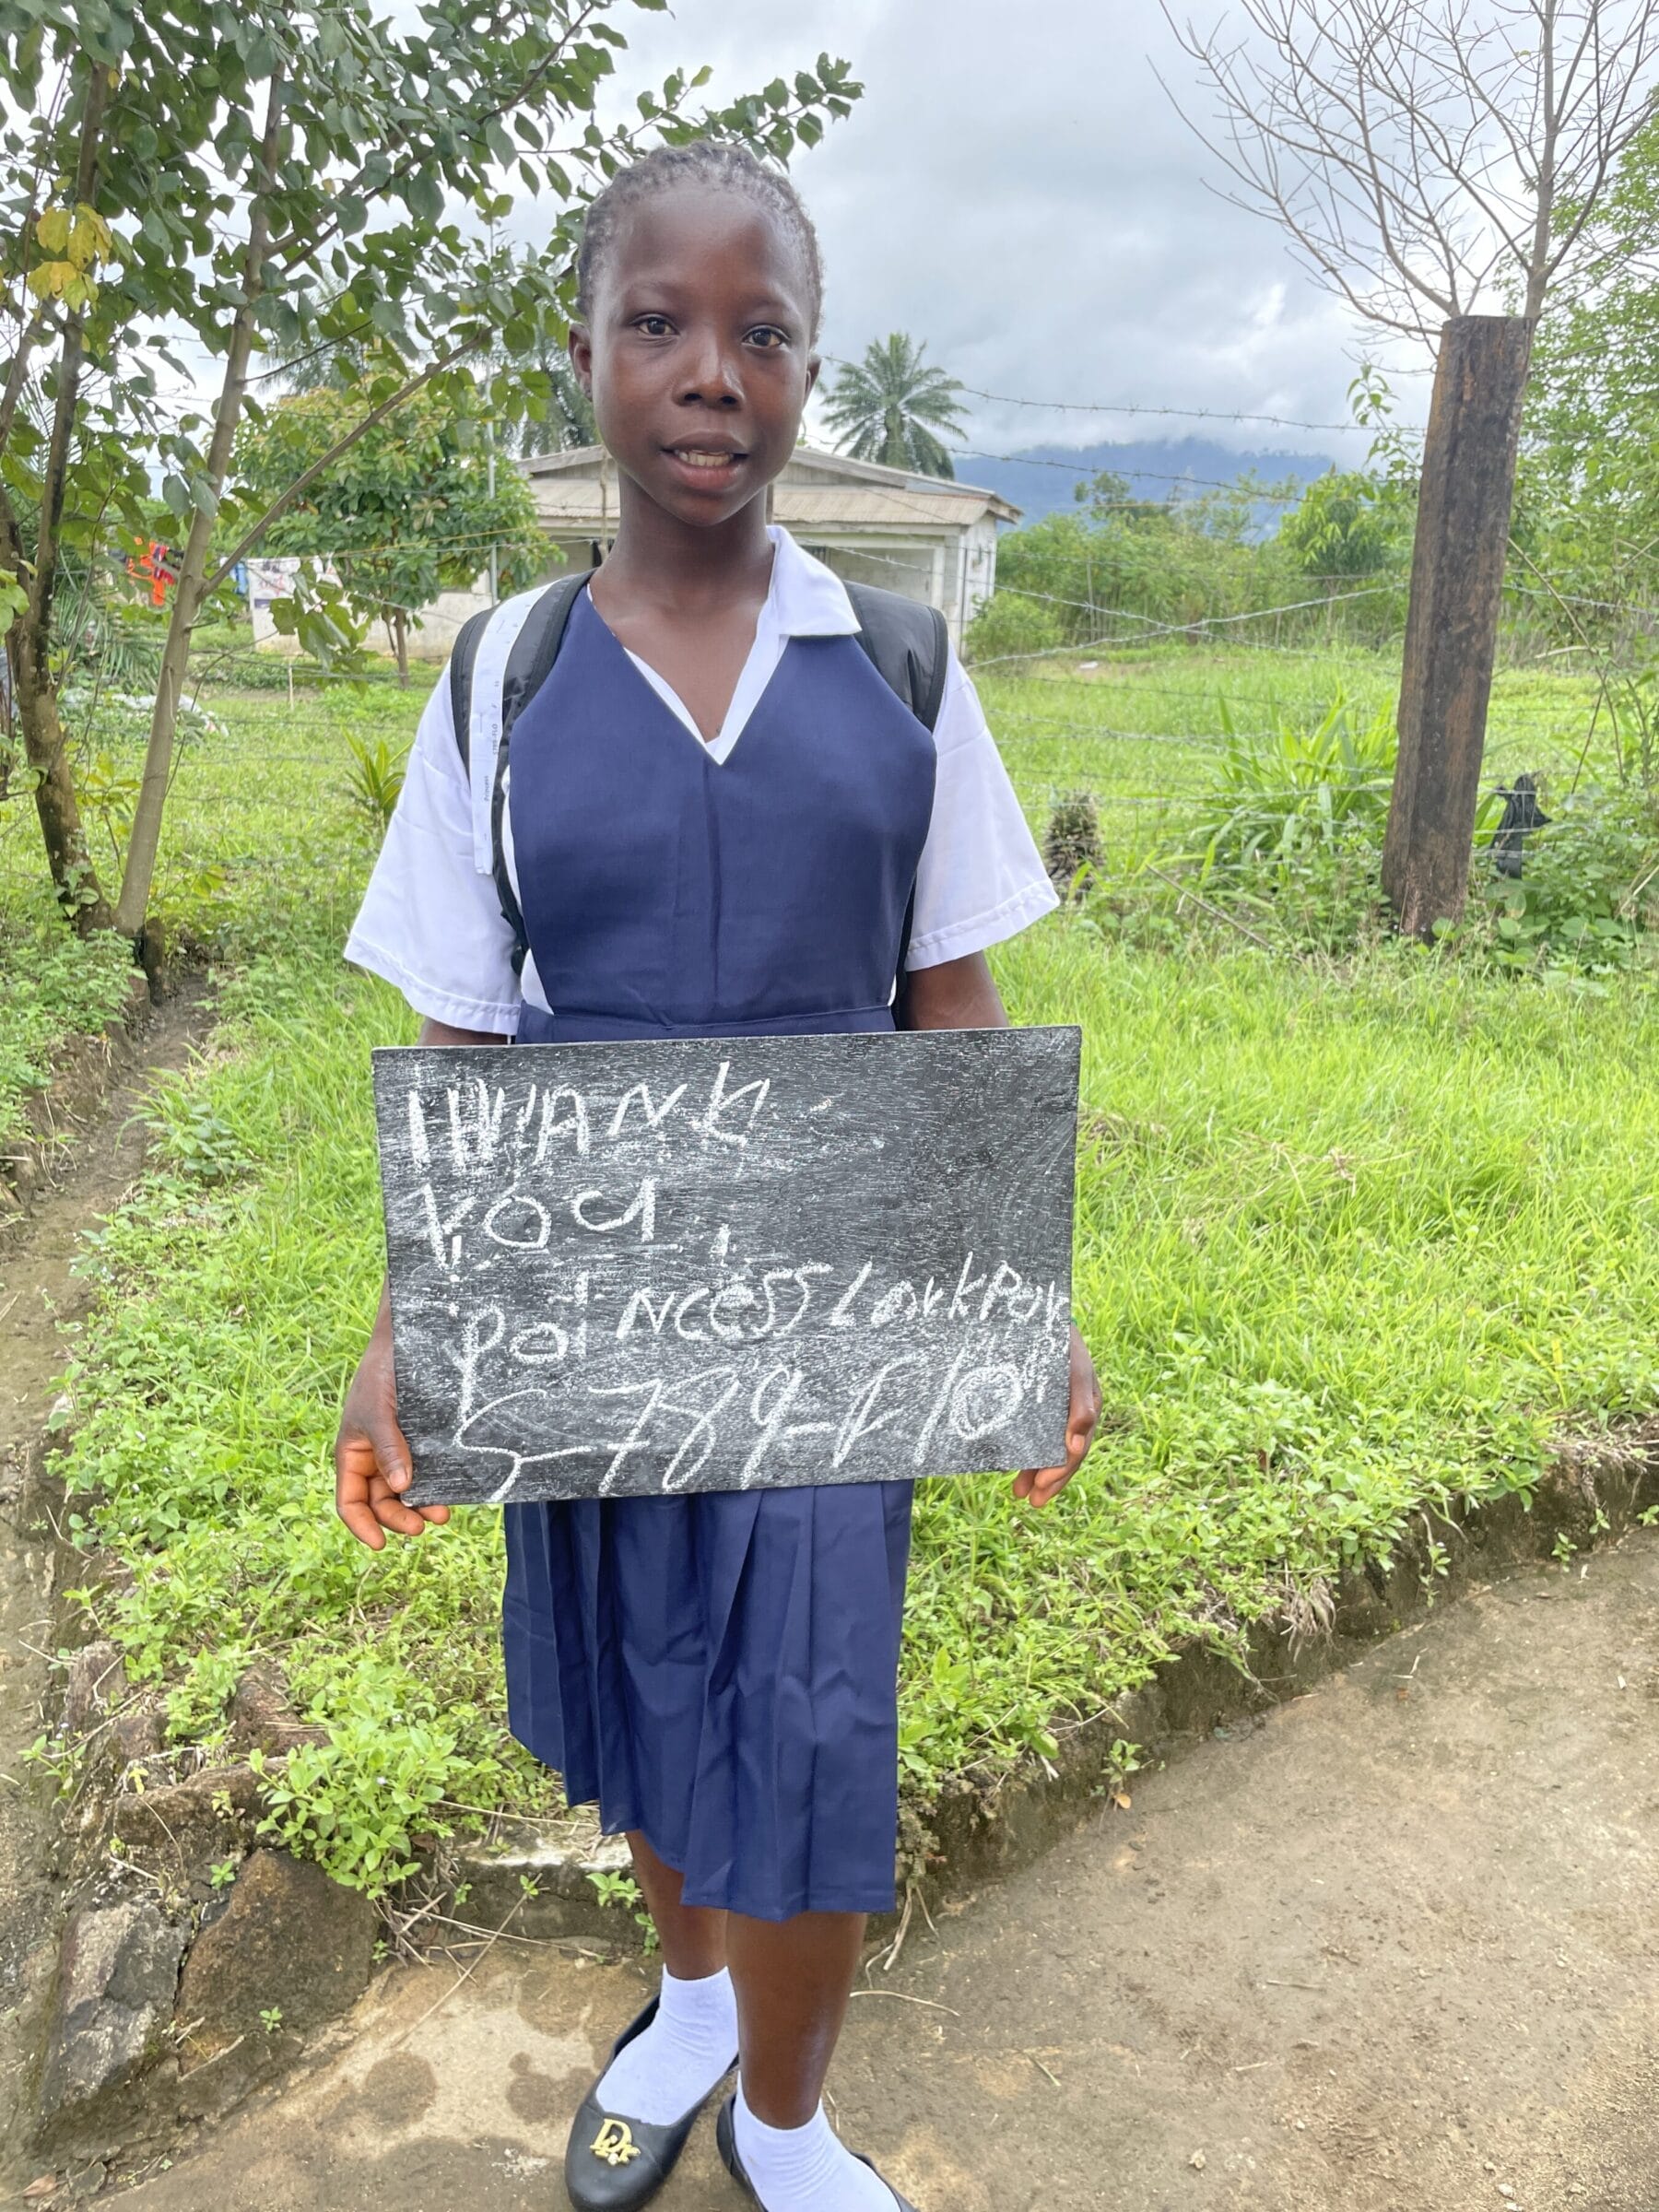 THANK
YOU
Poincess Lavkpor
S-789-F10